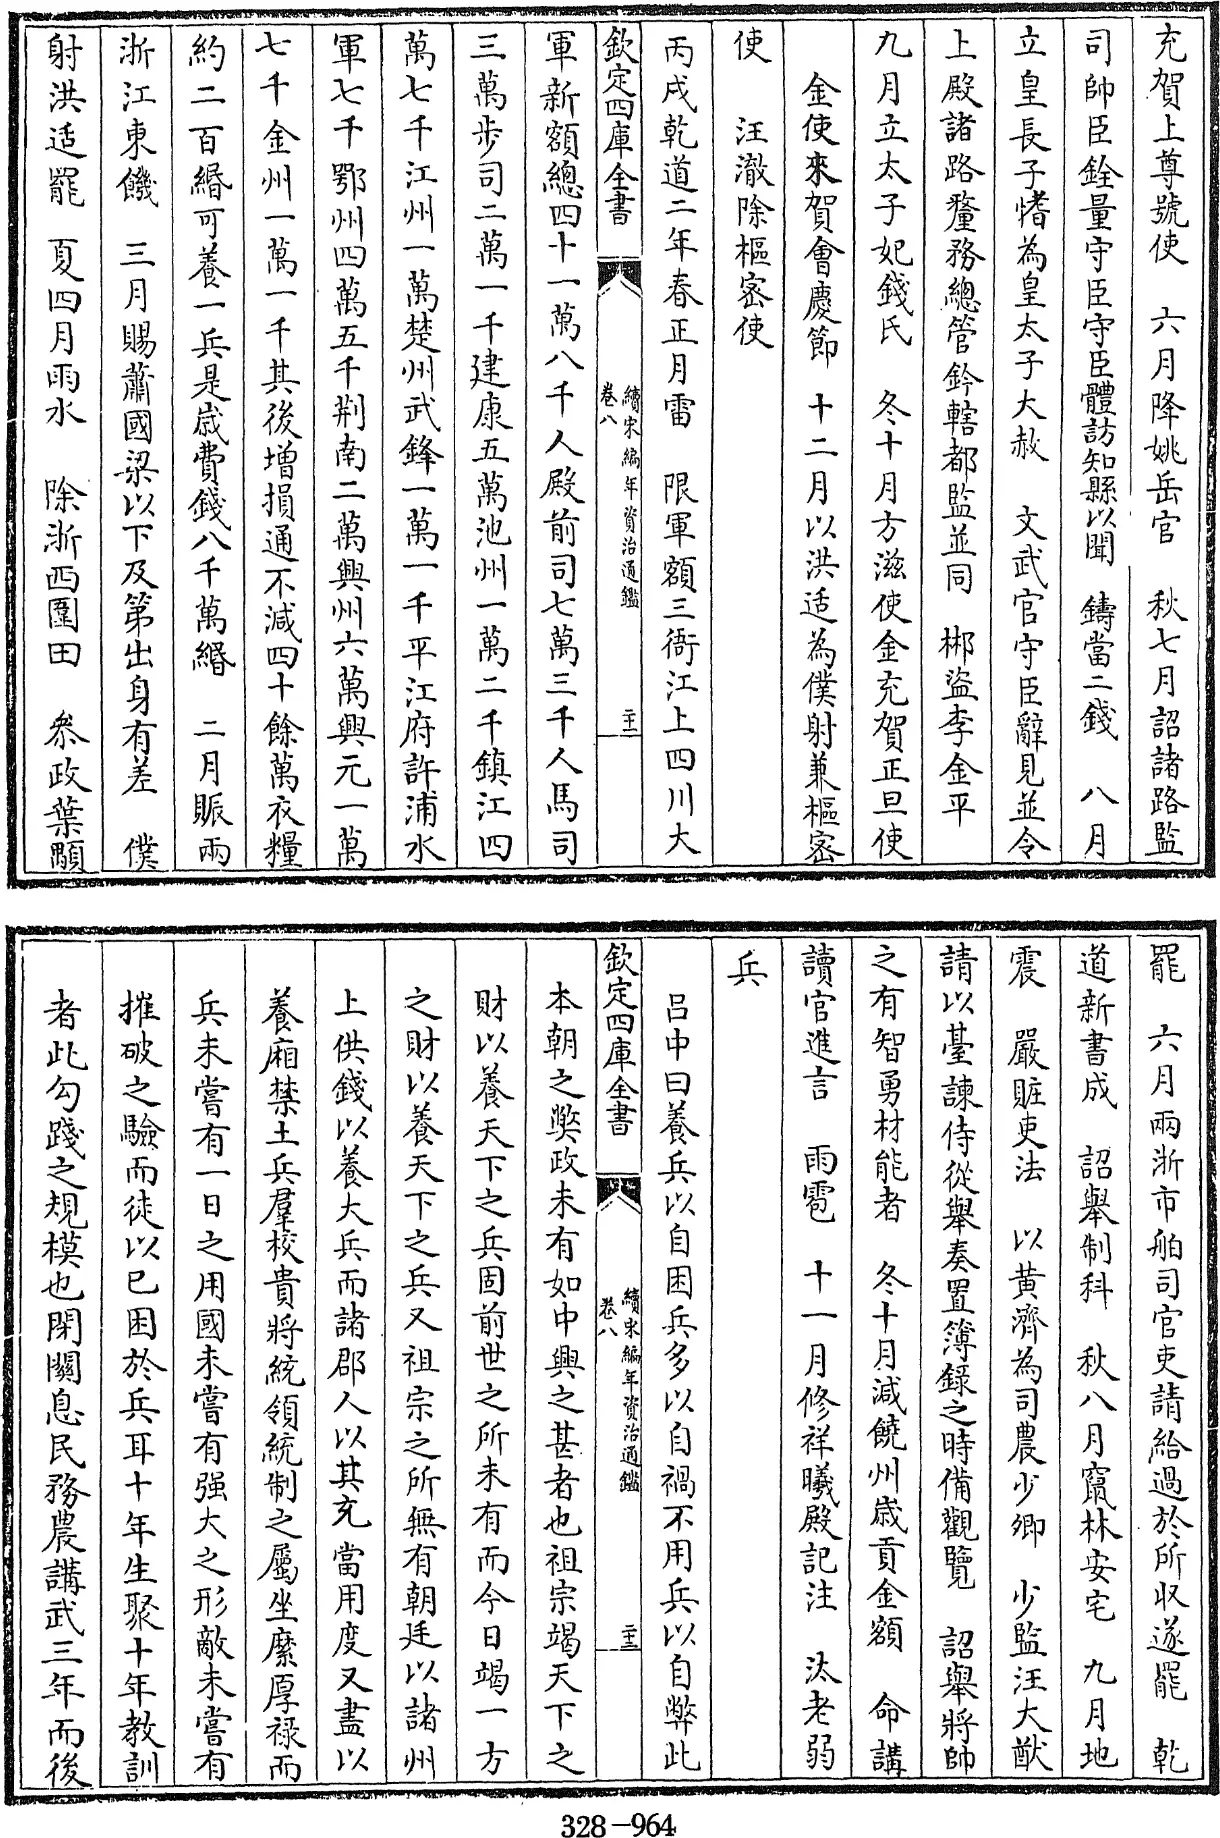 充賀上尊號使　六月降姚岳官　秋七月詔諸路監
司帥臣銓量守臣守臣體訪知縣以聞　鑄當二錢　八月
立皇長子愭為皇太子大赦　文武官守臣辭見並令
上殿諸路釐務總管鈐轄都監並同　郴盜李金平
九月立太子妃錢氏　冬十月方滋使金充賀正旦使
金使來賀會慶節　十二月以洪适為僕射兼樞密
使　汪澈除樞密使
丙戌乾道二年春正月雷　限軍額三衙江上四川大
欽定四庫全書
續宋編年資治通鑑
卷八
二十二
軍新額總四十一萬八千人殿前司七萬三千人馬司
三萬步司二萬一千建康五萬池州一萬二千鎮江四
萬七千江州一萬楚州武鋒一萬一千平江府許浦水
軍七千鄂州四萬五千荆南二萬興州六萬興元一萬
七千金州一萬一千其後增損通不減四十餘萬衣糧
約二百緡可養一兵是歲費錢八千萬緡　二月賑兩
浙江東饑　三月賜蕭國梁以下及第出身有差　僕
射洪适罷　夏四月雨水　除浙西圍田　叅政葉顒
罷　六月兩浙市舶司官吏請給過於所收遂罷　乾
道新書成　詔舉制科　秋八月竄林安宅　九月地
震　嚴贓吏法　以黄濟為司農少卿　少監汪大猷
請以臺諫侍從舉奏置簿錄之時備觀覽　詔舉將帥
之有智勇材能者　冬十月減饒州歲貢金額　命講
讀官進言　雨雹　十一月修祥曦殿記注　汰老弱
兵
吕中曰養兵以自困兵多以自禍不用兵以自弊此
欽定四庫全書
續宋編年資治通鑑
卷八
二十三
本朝之獘政未有如中興之甚者也祖宗竭天下之
財以養天下之兵固前世之所未有而今日竭一方
之財以養天下之兵又祖宗之所無有朝廷以諸州
上供錢以養大兵而諸郡人以其充當用度又盡以
養廂禁土兵羣校貴將統領統制之屬坐縻厚禄而
兵未嘗有一日之用國未嘗有强大之形敵未嘗有
摧破之驗而徒以已困於兵耳十年生聚十年教訓
者此勾踐之規模也閉關息民務農講武三年而後
328-964